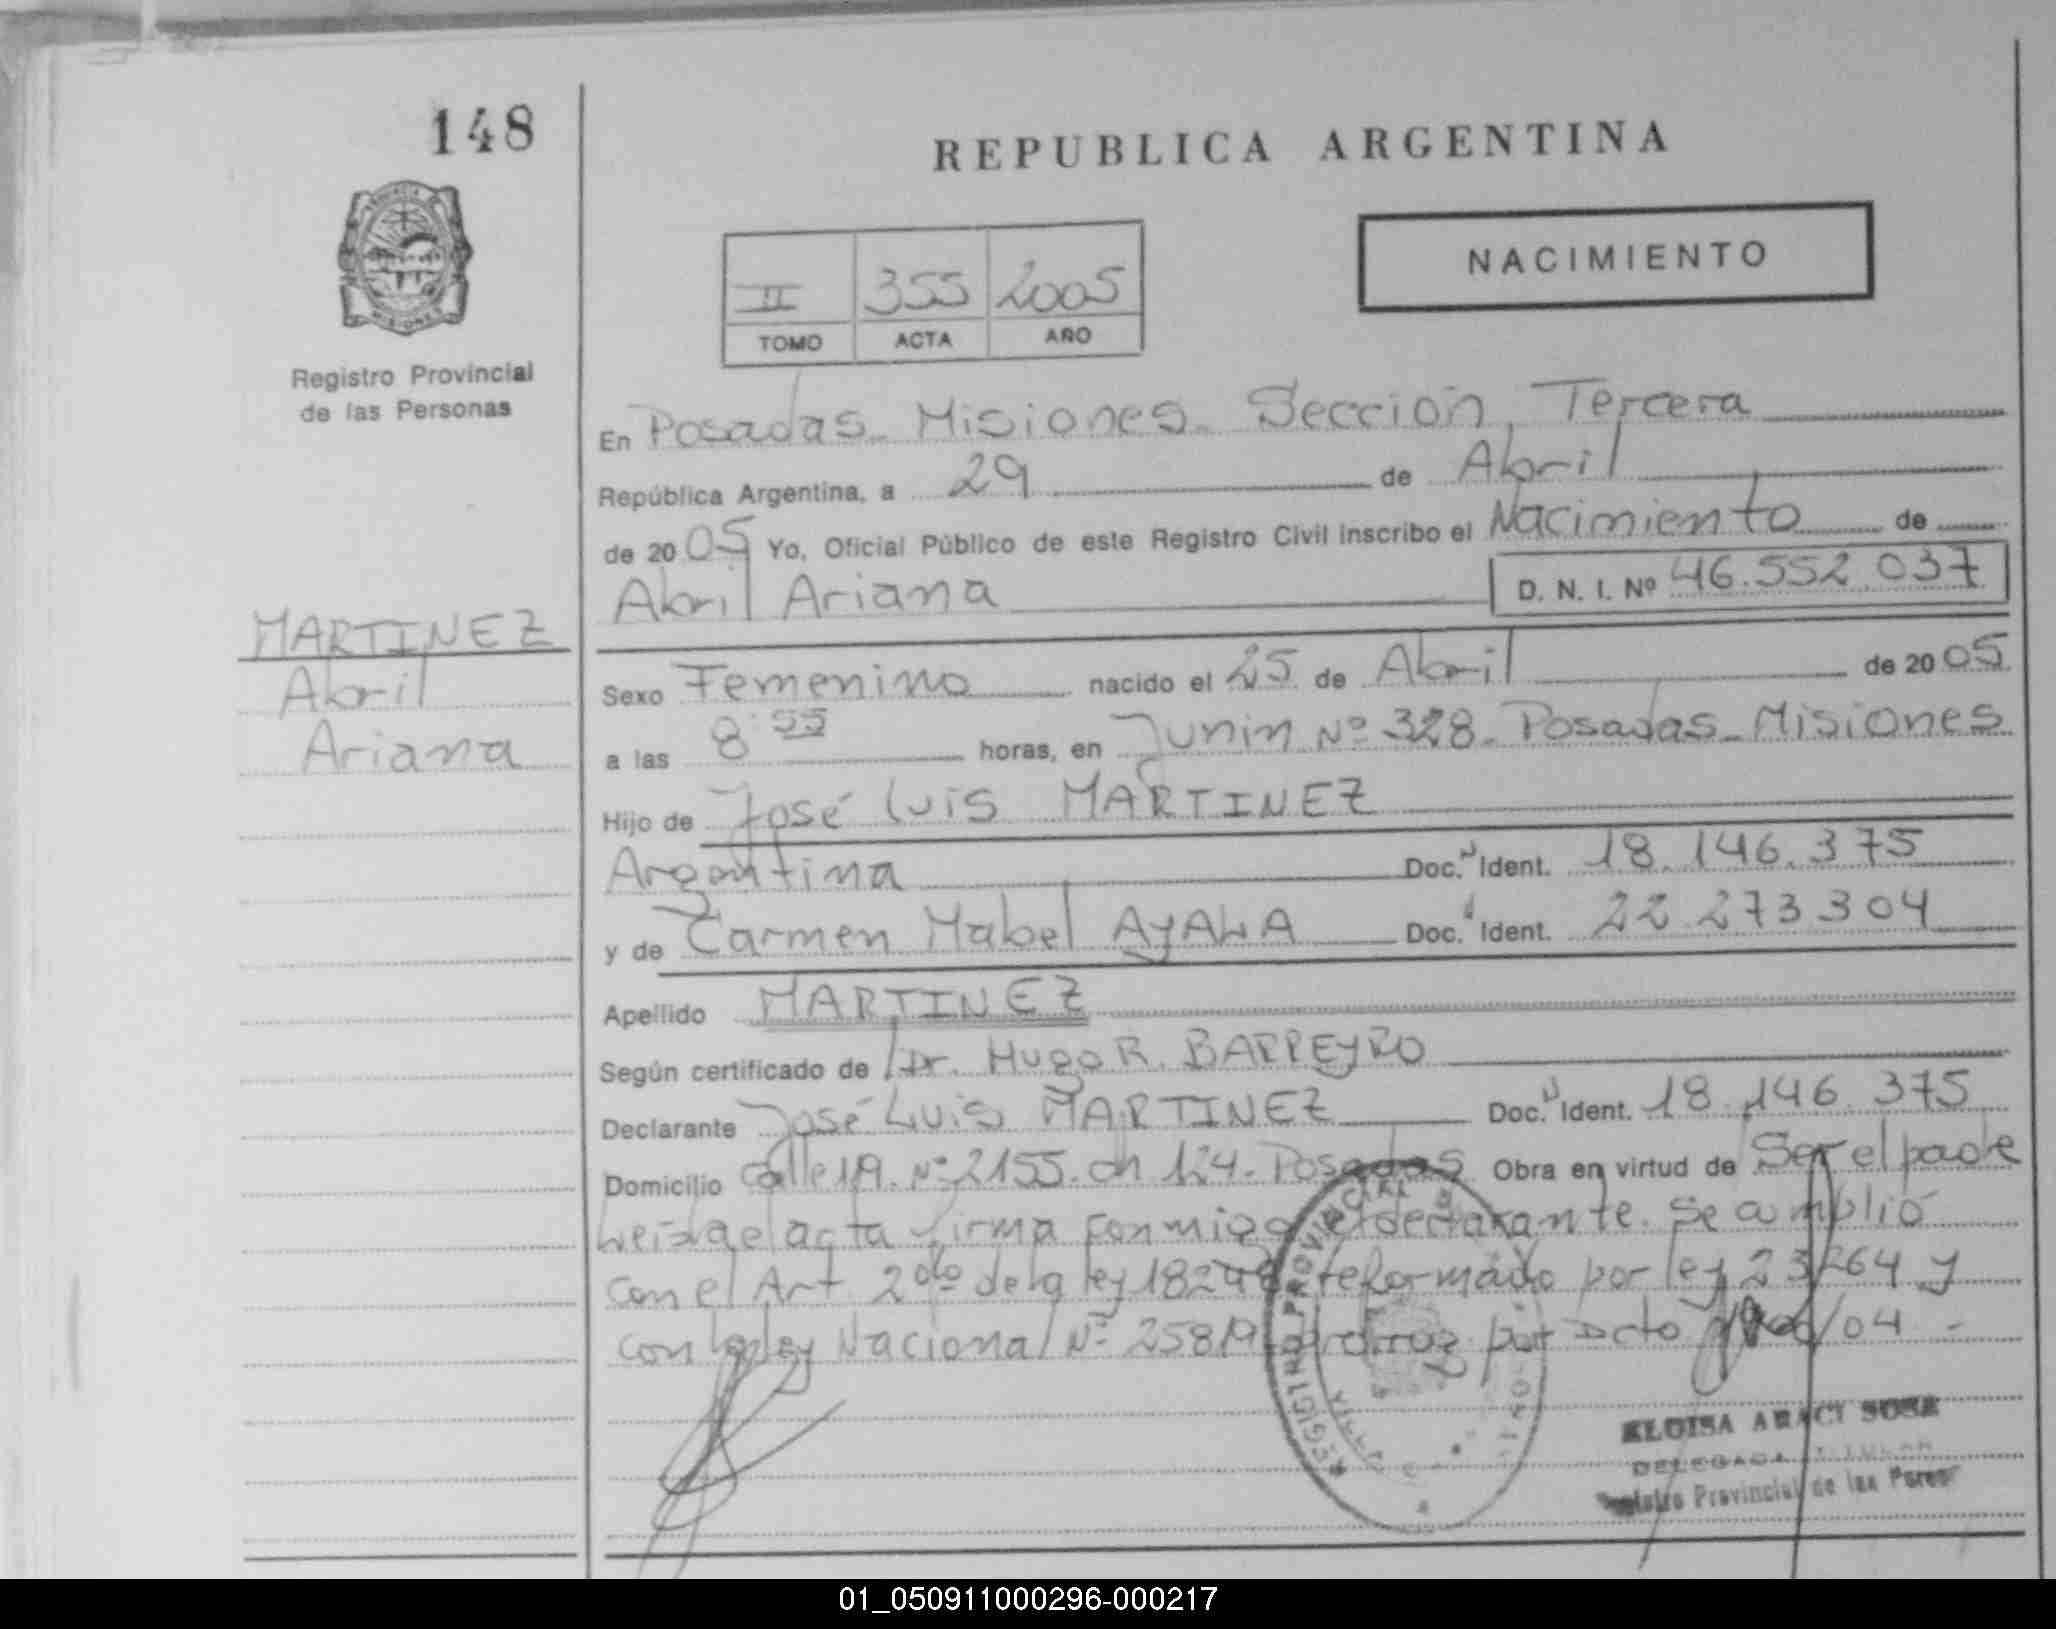 148
REPUBLICA ARGENTINA
NACIMIENTO
II 355 2005
TOMO ACTA AÑO
Registro Provincial
de las Personas
En Posadas - Misiones - Sección Tercera
República Argentina, a 29 de Abril
de 2005 Yo, Oficial Público de este Registro Civil inscribo el Nacimiento de
Abril Ariana D. N. I. Nº 46.552.037
MARTINEZ
Abril
Ariana
Sexo Femenino nacido el 25 de Abril de 2005
a las 8:55 horas, en Junin Nº 328 - Posadas - Misiones
Hijo de José Luis MARTINEZ
Argentina Doc. Ident. 18.146.375
y de Carmen Mabel AYALA Doc. Ident. 22.273.304
Apellido MARTINEZ
Según certificado de Dr. Hugo R. BARREYRO
Declarante José Luis MARTINEZ Doc. Ident. 18.146.375
Domicilio Calle 119 Nº 2155 - ch 124 - Posadas Obra en virtud de Ser el padre
Leida el acta firma conmigo el declarante. Se cumplió
con el Art 2do de la ley 18248 reformado por ley 23264 y
con la ley Nacional Nº 25819 por Dcto /04 -
REGISTRO PROVINCIAL
ELOISA ARACI SOSA
DELEGADA TITULAR
Registro Provincial de las Person
01_050911000296-000217